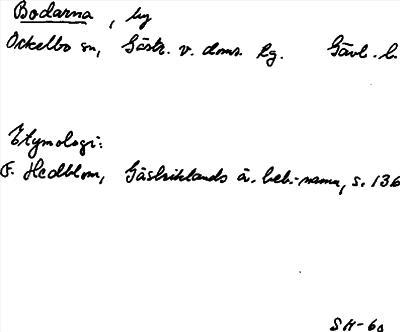 Bodarna, by
Ockelbo sn, Gästr. v. doms. hg. Gävl. l.
Etymologi:
F. Hedblom, Gästriklands ä. beb.-namn, s. 136
SH-60